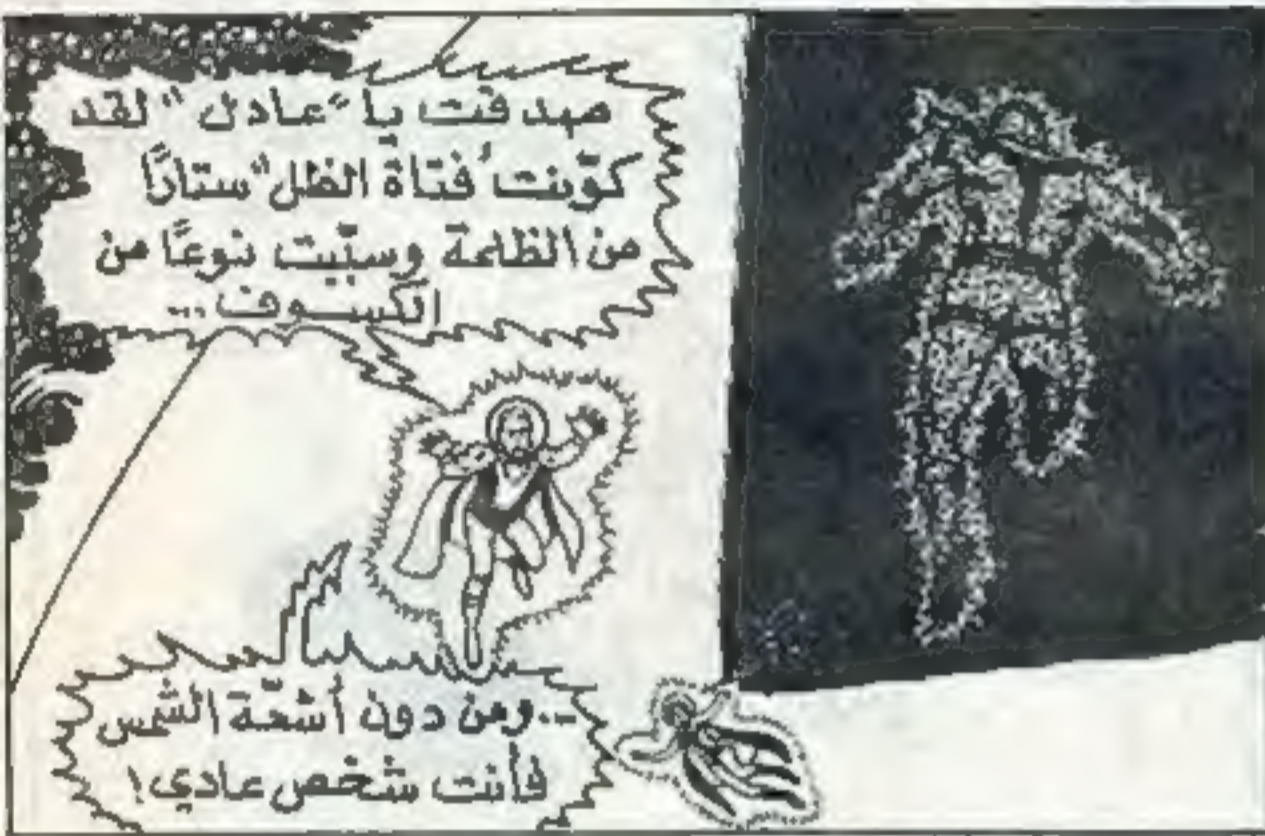 صدقت يا "عادل" لقد
كوّنت "فتاة الظل" ستارًا
من الظلمة وسبّبت نوعًا من
الكسوف ...
...ومن دون أشعّة الشمس
فأنت شخص عادي!